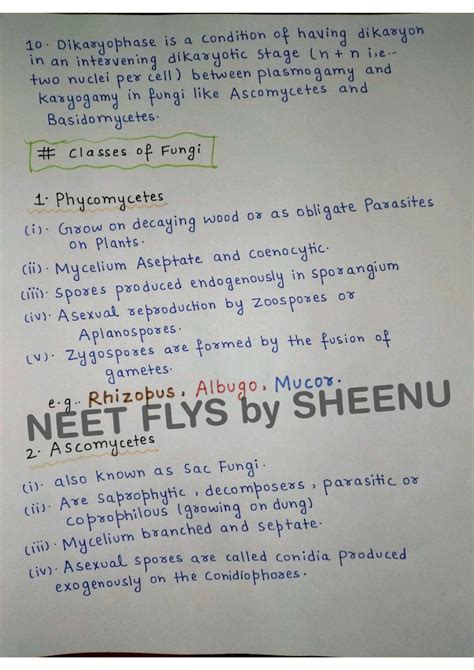 10. Dikaryophase is a condition of having dikaryon
in an intervening dikaryotic stage (n + n i.e...
two nuclei per cell) between plasmogamy and
Karyogamy in fungi like Ascomycetes and
Basidomycetes.
# Classes of Fungi
1. Phycomycetes
(i). Grow on decaying wood or as obligate Parasites
on Plants.
(ii). Mycelium Aseptate and coenocytic.
(iii). Spores produced endogenously in sporangium
(iv). Asexual reproduction by Zoospores or
Aplanospores.
(v). Zygospores are formed by the fusion of
gametes.
e.g.. Rhizopus, Albugo, Mucor.
NEET FLYS by SHEENU
2. Ascomycetes
(i). also known as Sac Fungi.
(ii). Are Saprophytic, decomposers, parasitic or
coprophilous (growing on dung)
(iii). Mycelium branched and septate.
(iv). Asexual spores are called conidia produced
exogenously on the Conidiophores.